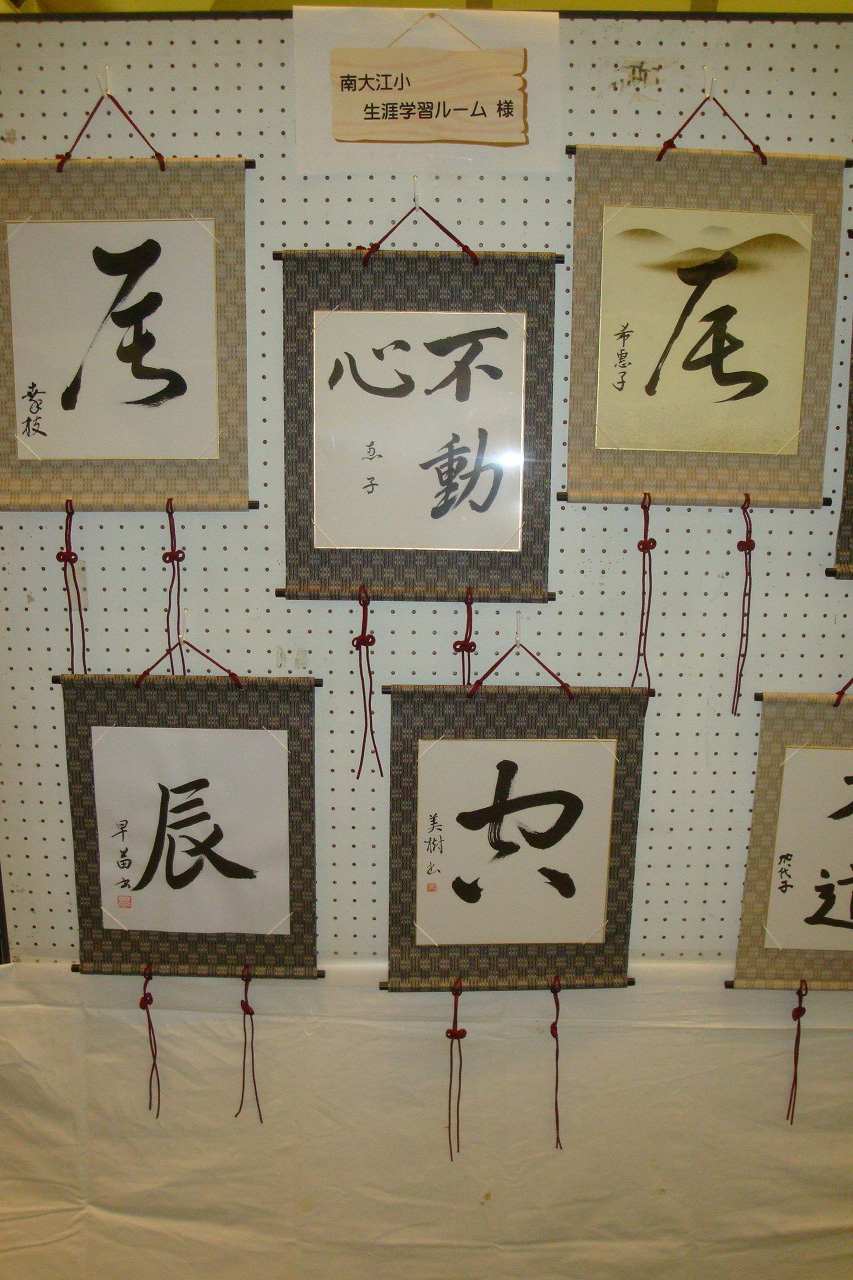 南大江小
生涯学習ルーム 様
辰
不動
心
恵子
辰
希惠子
辰
早苗書
美樹書
代子